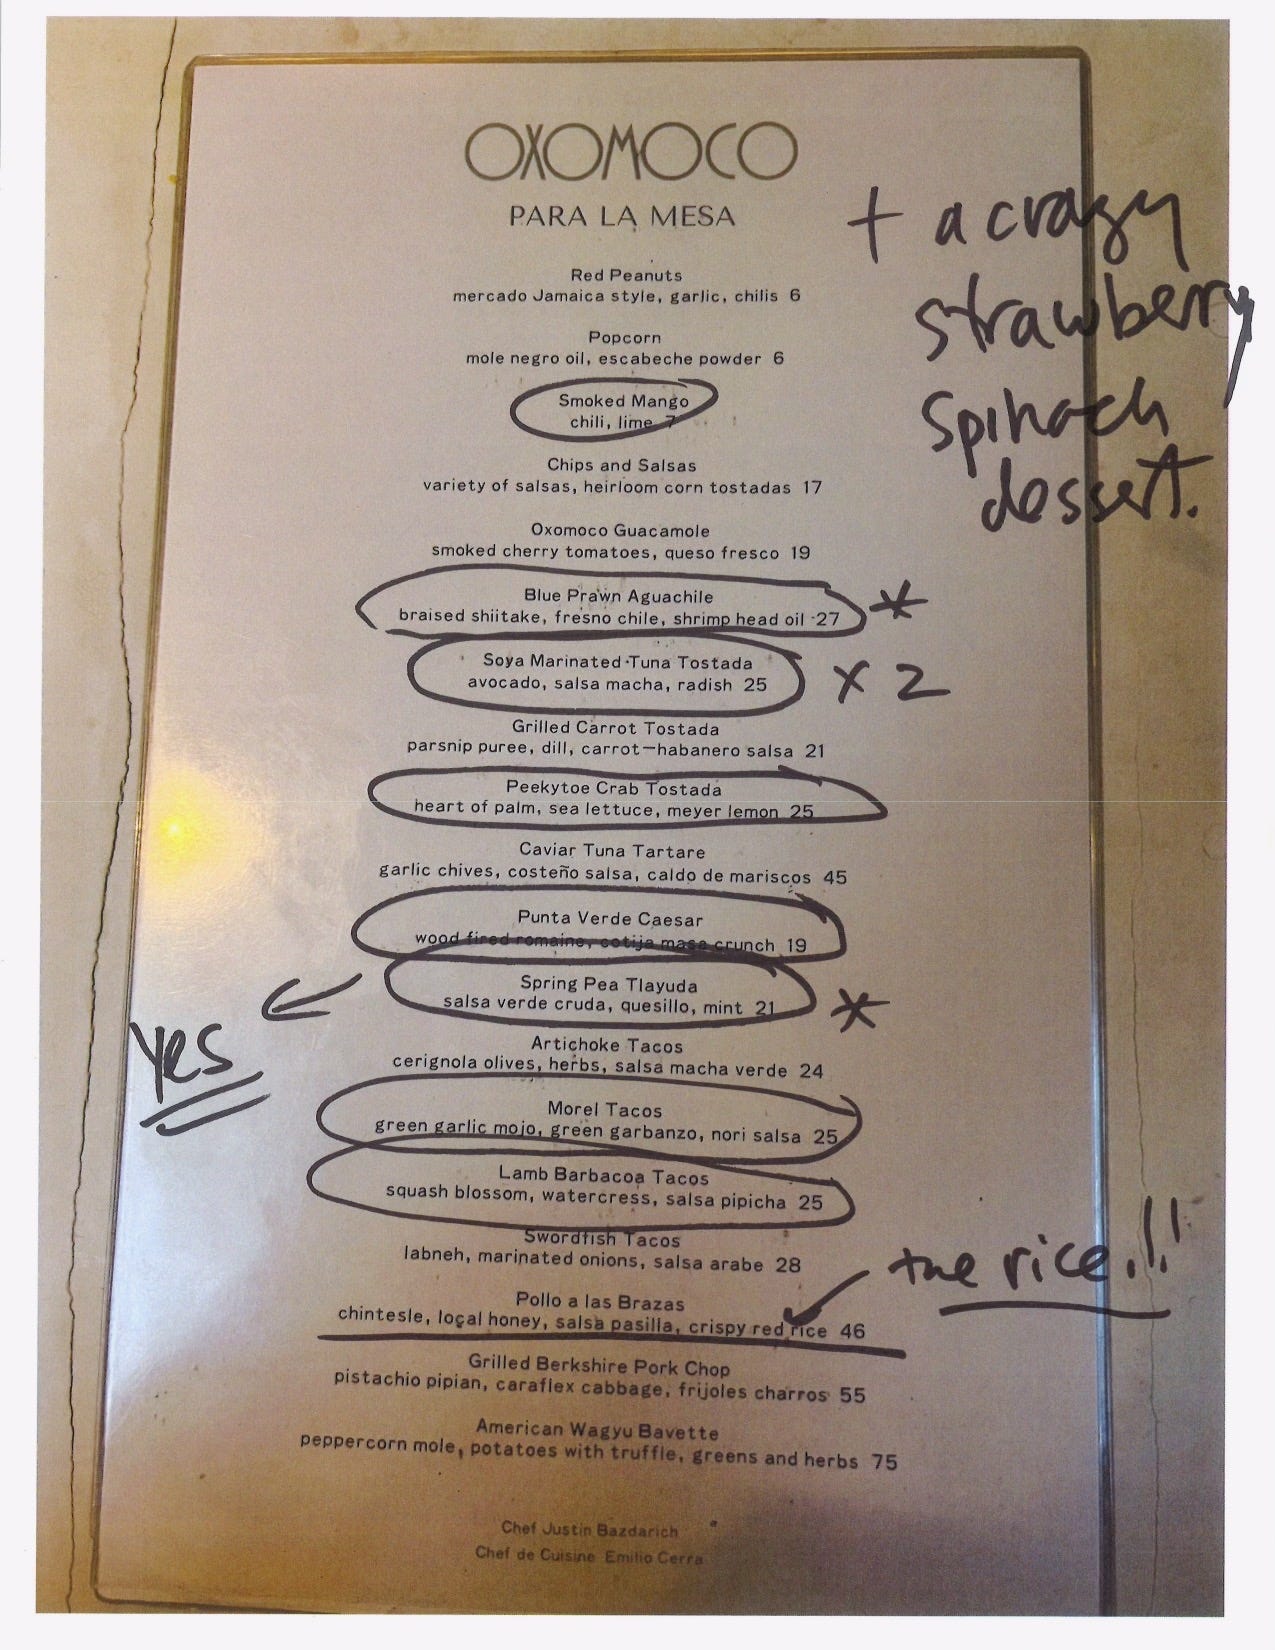 OXOMOCO
PARA LA MESA
+ a crazy
strawberry
spinach
dessert.
Red Peanuts
mercado Jamaica style, garlic, chilis 6
Popcorn
mole negro oil, escabeche powder 6
Smoked Mango
chili, lime 7
Chips and Salsas
variety of salsas, heirloom corn tostadas 17
Oxomoco Guacamole
smoked cherry tomatoes, queso fresco 19
Blue Prawn Aguachile
braised shiitake, fresno chile, shrimp head oil 27 *
Soya Marinated Tuna Tostada
avocado, salsa macha, radish 25 x 2
Grilled Carrot Tostada
parsnip puree, dill, carrot-habanero salsa 21
Peekytoe Crab Tostada
heart of palm, sea lettuce, meyer lemon 25
Caviar Tuna Tartare
garlic chives, costeño salsa, caldo de mariscos 45
Punta Verde Caesar
wood fired romaine, cotija masa crunch 19
Spring Pea Tlayuda
salsa verde cruda, quesillo, mint 21 *
yes
Artichoke Tacos
cerignola olives, herbs, salsa macha verde 24
Morel Tacos
green garlic mojo, green garbanzo, nori salsa 25
Lamb Barbacoa Tacos
squash blossom, watercress, salsa pipicha 25
Swordfish Tacos
labneh, marinated onions, salsa arabe 28
the rice!!
Pollo a las Brazas
chintesle, local honey, salsa pasilla, crispy red rice 46
Grilled Berkshire Pork Chop
pistachio pipian, caraflex cabbage, frijoles charros 55
American Wagyu Bavette
peppercorn mole, potatoes with truffle, greens and herbs 75
Chef Justin Bazdarich
Chef de Cuisine Emilio Cerra